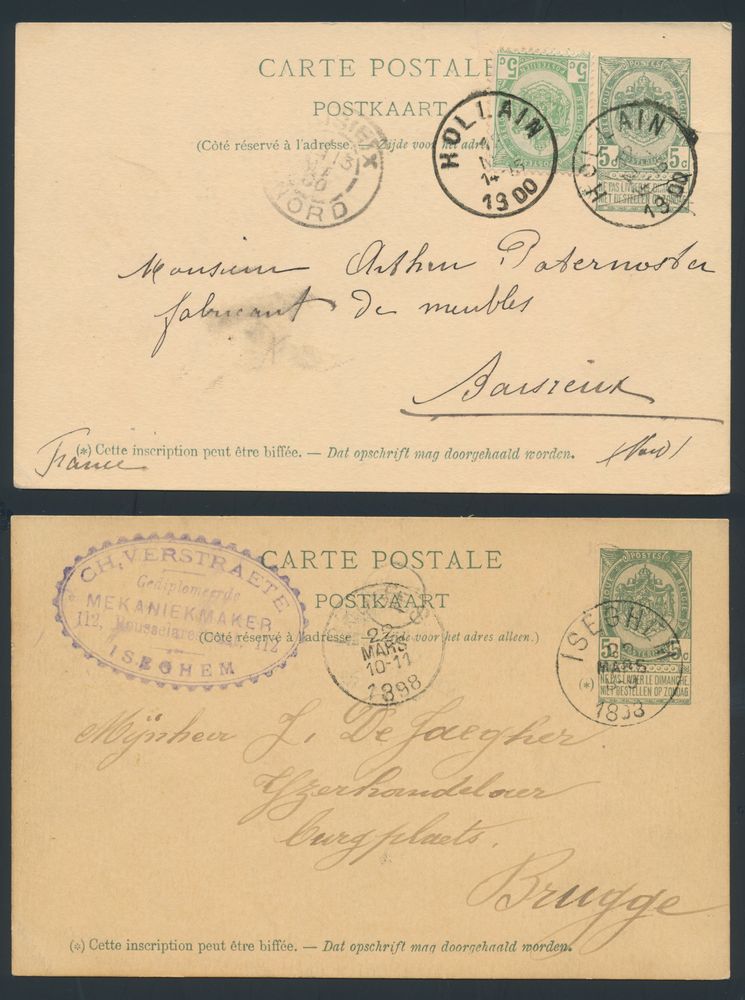 CARTE POSTALE
POSTKAART
(Côté réservé à l'adresse. — Zijde voor het adres
POSTES
5 c 5 c
NE PAS LIVRER LE DIMANCHE
NIET BESTELLEN OP ZONDAG
HOLLAIN
14-
1900
HOLLAIN
1900
13
NORD
Monsieur Arthur Paternoster
fabricant de meubles
Baisieux
(*) Cette inscription peut être biffée. — Dat opschrift mag doorgehaald worden.
France
(Nord)
CH. VERSTRAETE
Gediplomeerde
MEKANIEKMAKER
112, 112
ISEGHEM
CARTE POSTALE
POSTKAART
(Côté réservé à l'adresse. — Zijde voor het adres alleen.)
POSTES
5 c
NE PAS LIVRER LE DIMANCHE
NIET BESTELLEN OP ZONDAG
22
MARS
10-11
1898
ISEGHEM
MARS
Mijnheer J. De Jaegher
Yzerhandelaer
burgplaets,
Brugge
(*) Cette inscription peut être biffée. — Dat opschrift mag doorgehaald worden.